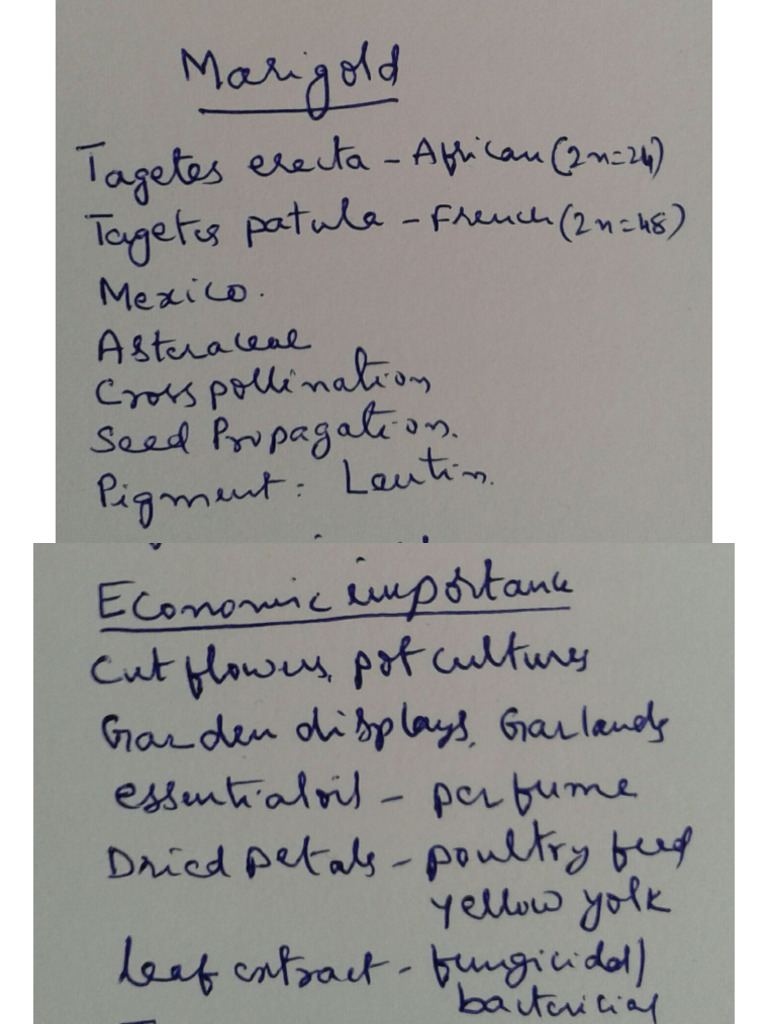 Marigold
Tagetes erecta - African (2n=24)
Tagetes patula - French (2n=48)
Mexico.
Asteraceae
Cross pollination
Seed Propagation.
Pigment: Leutin.
Economic importance
Cut flowers, pot cultures
Garden displays, Garlands
essential oil - perfume
Dried petals - poultry feed
yellow yolk
leaf extract - fungicidal/
bactericial